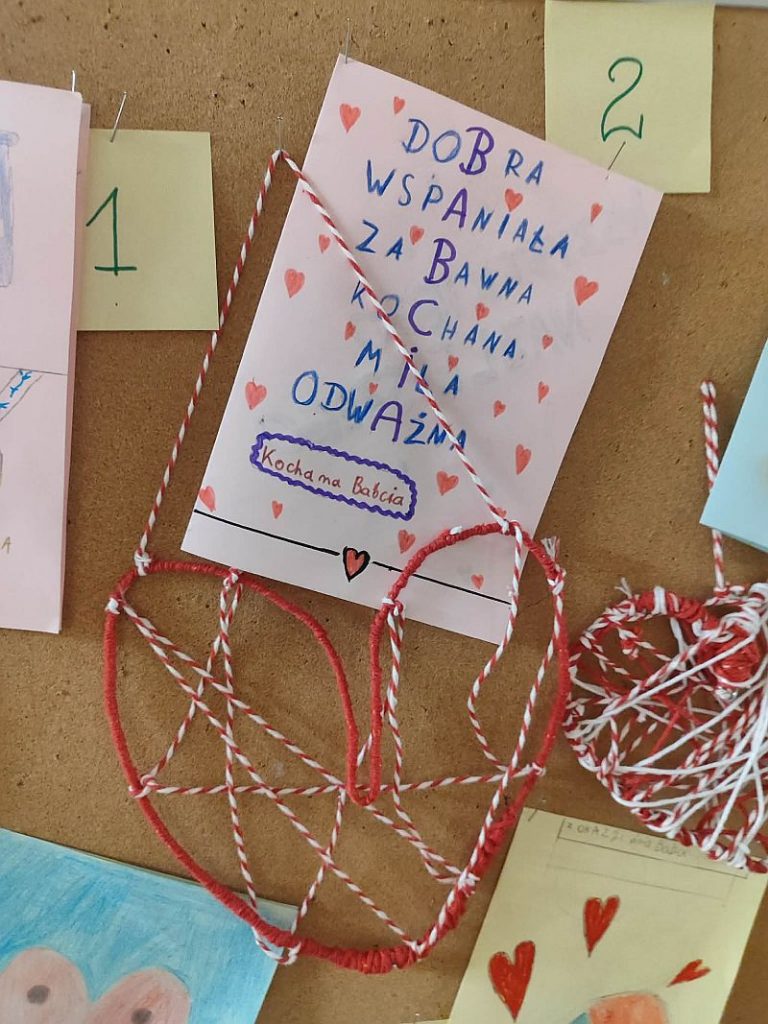 2
1
DOBRA
WSPANIAŁA
ZABAWNA
KOCHANA
MiŁA
ODWAŻNA
Kochana Babcia
A